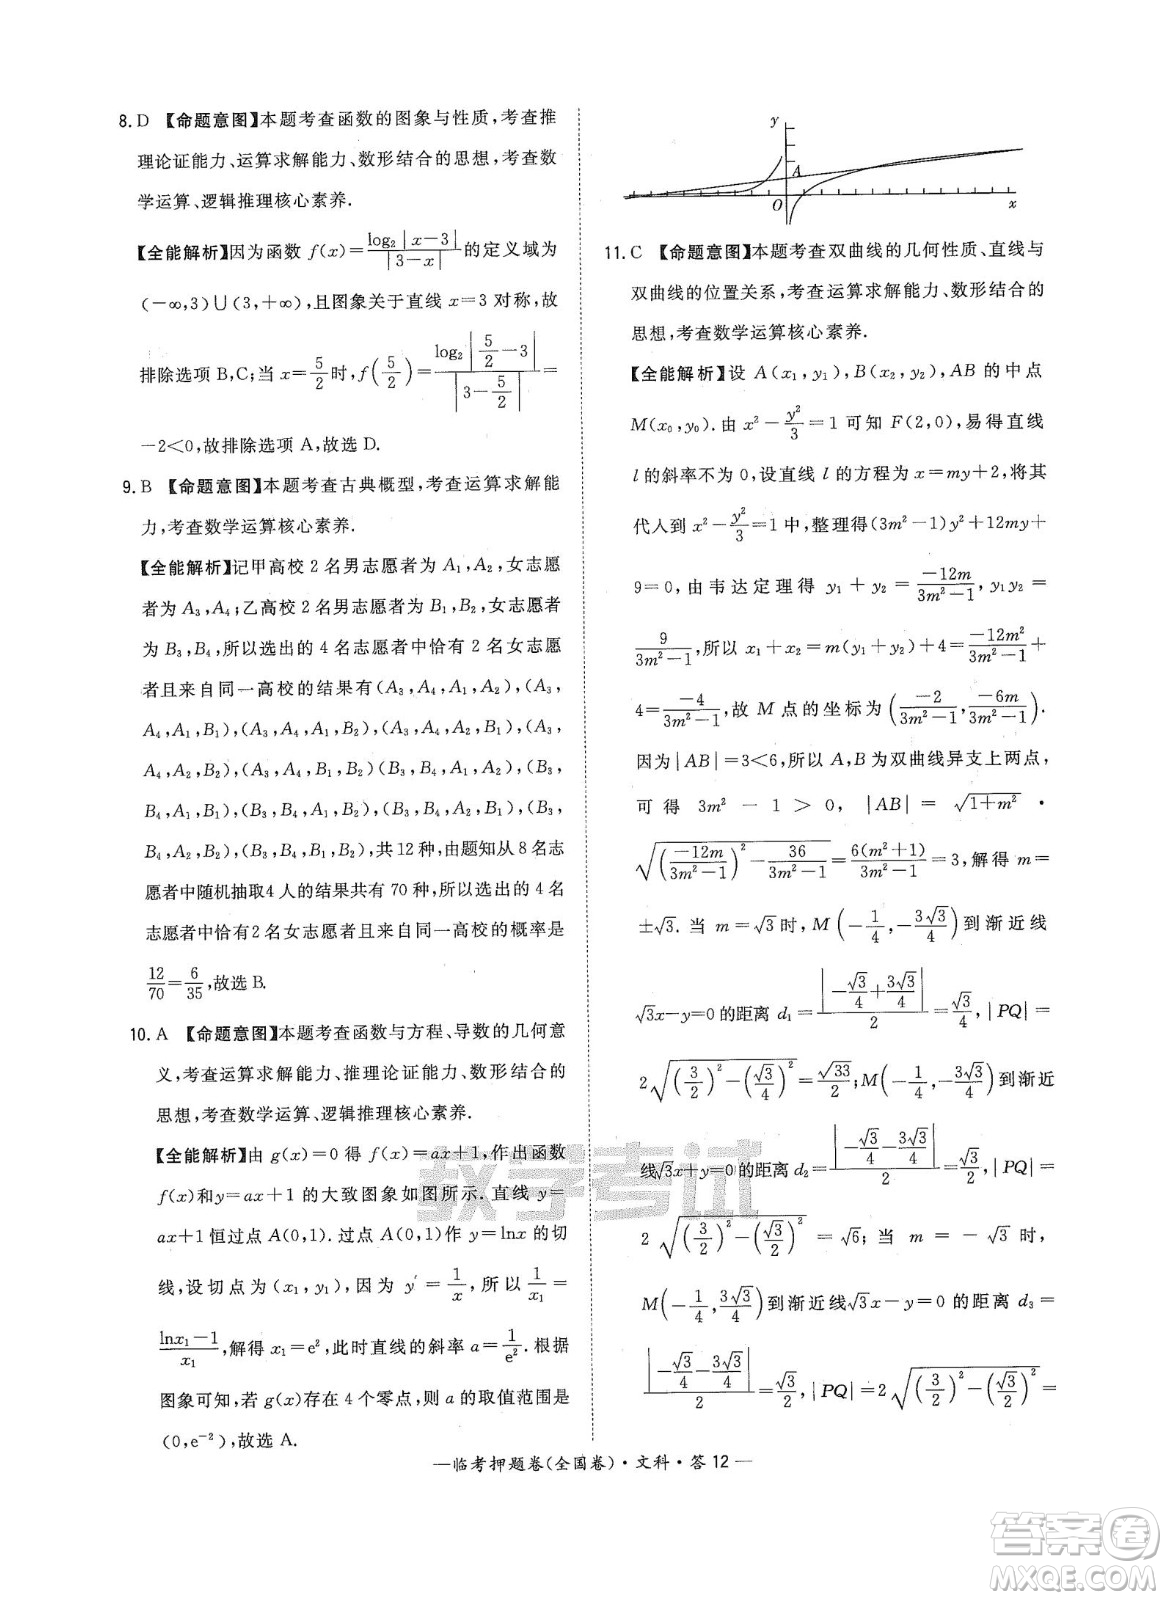 8. D 【命题意图】本题考查函数的图象与性质,考查推
理论证能力、运算求解能力、数形结合的思想,考查数
学运算、逻辑推理核心素养.
【全能解析】因为函数 f(x)=log₂|x-3|/|3-x|的定义域为
(-∞,3)∪(3,+∞),且图象关于直线 x=3 对称,故
排除选项 B,C;当 x=5/2时,f(5/2)=log₂|5/2-3|/|3-5/2|=
-2<0,故排除选项 A,故选 D.
9. B 【命题意图】本题考查古典概型,考查运算求解能
力,考查数学运算核心素养.
【全能解析】记甲高校 2 名男志愿者为 A₁,A₂,女志愿
者为 A₃,A₄;乙高校 2 名男志愿者为 B₁,B₂,女志愿
者为 B₃,B₄,所以选出的 4 名志愿者中恰有 2 名女志愿
者且来自同一高校的结果有(A₃,A₄,A₁,A₂),(A₃,
A₄,A₁,B₁),(A₃,A₄,A₁,B₂),(A₃,A₄,A₂,B₁),(A₃,
A₄,A₂,B₂),(B₃,B₄,A₁,A₂),(B₃,B₄,A₁,B₁),(B₃,
B₄,A₁,B₂),(B₃,B₄,B₁,B₂),(B₃,B₄,A₂,B₁),(B₃,
B₄,A₂,B₂),(A₃,A₄,B₁,B₂),共 12 种,由题知从 8 名志
愿者中随机抽取4 人的结果共有 70 种,所以选出的 4 名
志愿者中恰有2 名女志愿者且来自同一高校的概率是
12/70=6/35,故选 B.
10. A 【命题意图】本题考查函数与方程、导数的几何意
义,考查运算求解能力、推理论证能力、数形结合的
思想,考查数学运算、逻辑推理核心素养.
【全能解析】由 g(x)=0 得 f(x)=ax+1,作出函数
f(x)和y=ax+1 的大致图象如图所示. 直线 y=
ax+1 恒过点 A(0,1). 过点 A(0,1)作 y=lnx 的切
线,设切点为(x₁,y₁),因为 y′=1/x,所以 1/x₁=
(lnx₁-1)/x₁,解得 x₁=e²,此时直线的斜率 a=1/e². 根据
图象可知,若 g(x)存在 4 个零点,则 a 的取值范围是
(0,e⁻²),故选 A.
y
A
O
x
11. C 【命题意图】本题考查双曲线的几何性质、直线与
双曲线的位置关系,考查运算求解能力、数形结合的
思想,考查数学运算核心素养.
【全能解析】设 A(x₁,y₁),B(x₂,y₂),AB 的中点
M(x₀,y₀). 由 x²-y²/3=1 可知 F(2,0),易得直线
l 的斜率不为 0,设直线 l 的方程为 x=my+2,将其
代入到 x²-y²/3=1 中,整理得(3m²-1)y²+12my+
9=0,由韦达定理得 y₁+y₂=-12m/(3m²-1),y₁y₂=
9/(3m²-1),所以 x₁+x₂=m(y₁+y₂)+4=-12m²/(3m²-1)+
4=-4/(3m²-1),故 M 点的坐标为(-2/(3m²-1),-6m/(3m²-1)).
因为|AB|=3<6,所以 A,B 为双曲线异支上两点,
可得 3m²-1>0,|AB|=√(1+m²)·
√((-12m/(3m²-1))²-36/(3m²-1))=6(m²+1)/(3m²-1)=3,解得 m=
±√3. 当 m=√3时,M(-1/4,-3√3/4)到渐近线
√3x-y=0的距离 d₁=|-√3/4+3√3/4|/2=√3/4,|PQ|=
2√((3/2)²-(√3/4)²)=√33/2;M(-1/4,-3√3/4)到渐近
线√3x+y=0 的距离 d₂=|-√3/4-3√3/4|/2=√3/2,|PQ|=
2√((3/2)²-(√3/2)²)=√6;当 m=-√3时,
M(-1/4,3√3/4)到渐近线√3x-y=0 的距离 d₃=
|-√3/4-3√3/4|/2=√3/2,|PQ|=2√((3/2)²-(√3/2)²)=
教学考试
—临考押题卷(全国卷)·文科·答 12—
答案卷
MXQE.COM